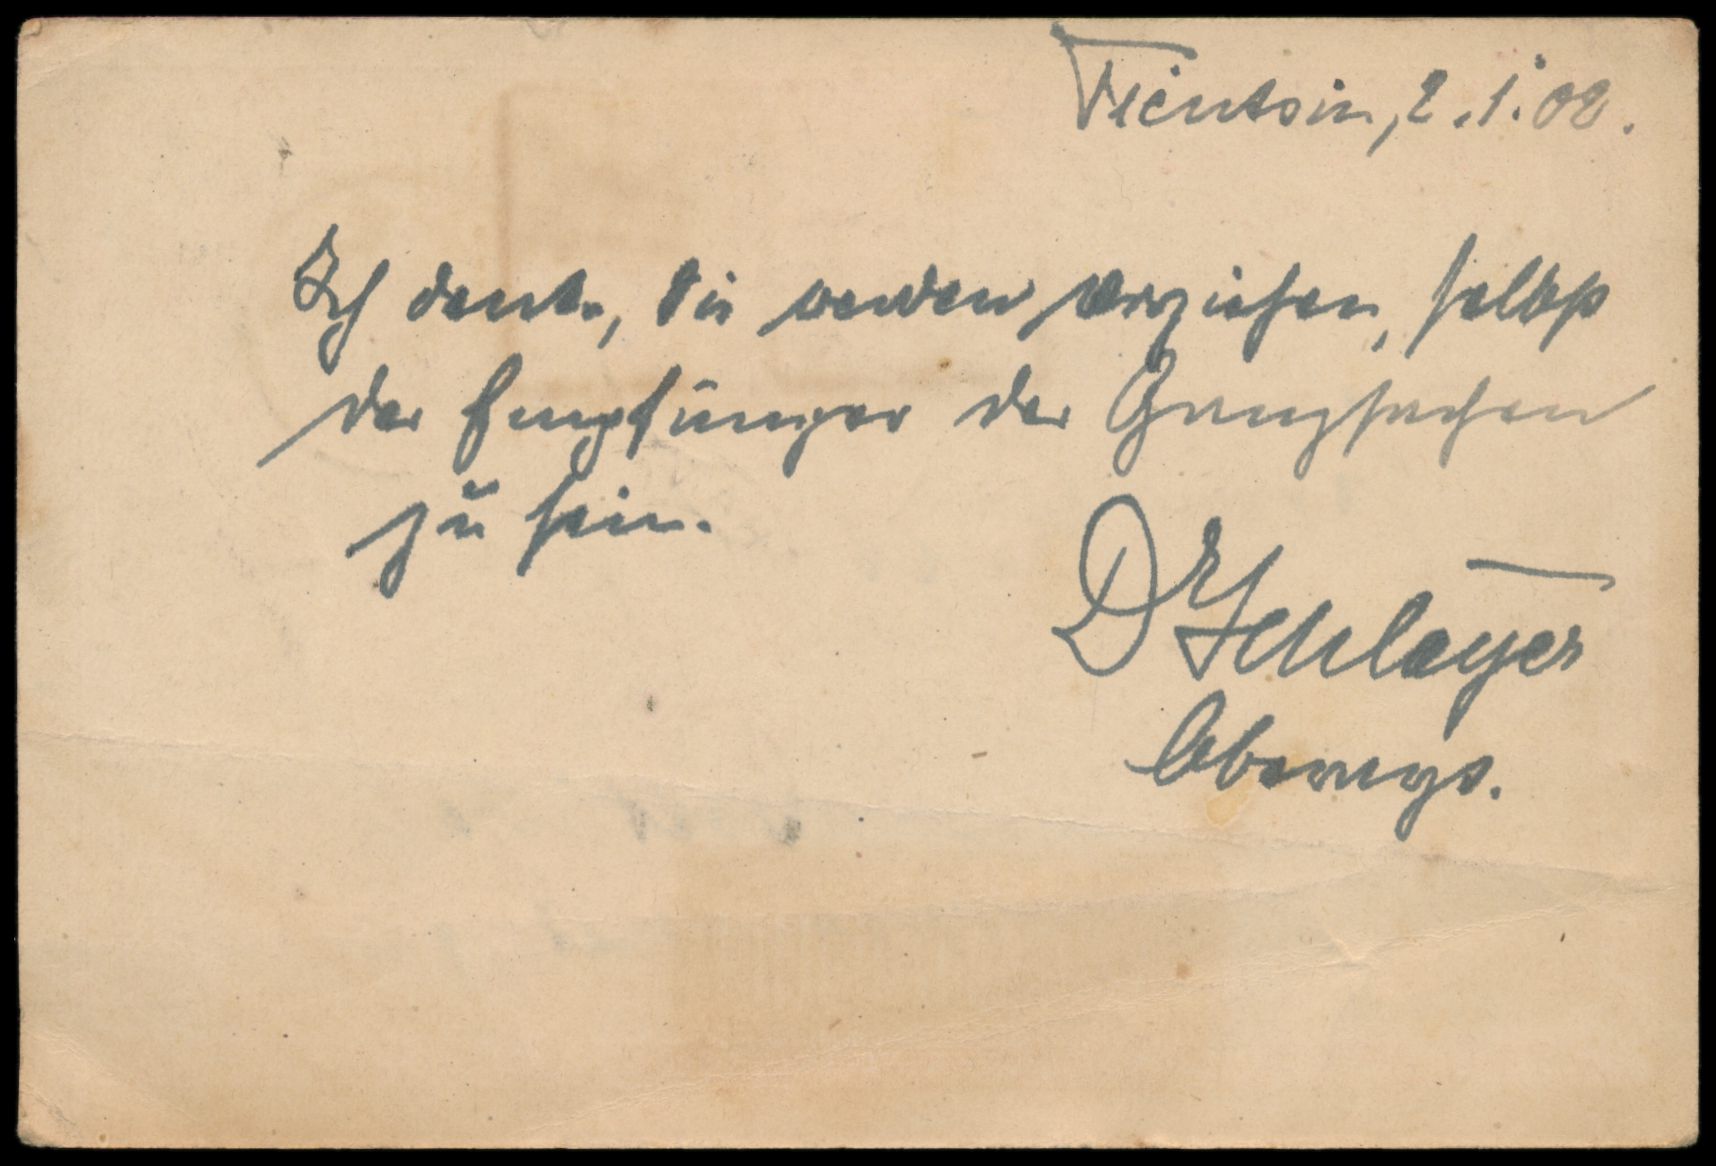 Tientsin, 2.1.02.
Ich denke, Sie werden vorziehen, selbst
der Empfänger der Ganzsachen
zu sein.
Dr Schlayer